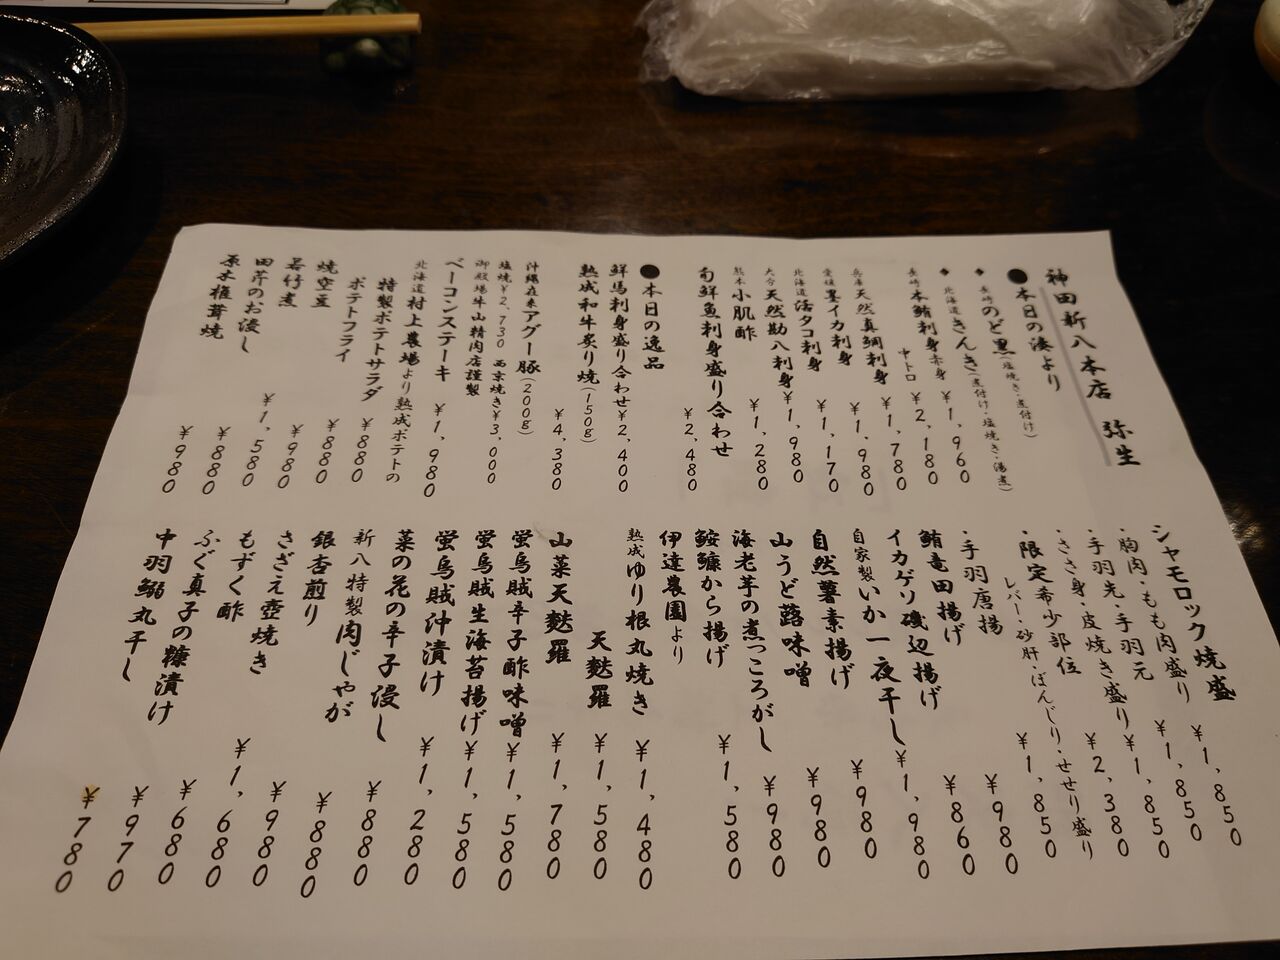 神田新八本店 弥生
●本日の湊より
◆長崎のど黒(塩焼き・煮付け)
◆北海道きんき(煮付け・塩焼き・湯煮)
長崎本鮪刺身 赤身 ¥1,960
中トロ ¥2,180
兵庫天然真鯛刺身 ¥1,780
愛媛墨イカ刺身 ¥1,980
北海道活タコ刺身 ¥1,170
大分天然勘八刺身 ¥1,980
熊本小肌酢 ¥1,280
旬鮮魚刺身盛り合わせ ¥2,480
●本日の逸品
鮮馬刺身盛り合わせ ¥2,400
熟成和牛炙り焼(150g) ¥4,380
沖縄在来アグー豚(200g)
塩焼¥2,730 西京焼き¥3,000
御殿場牛山精肉店謹製
ベーコンステーキ ¥1,980
北海道村上農場より熟成ポテトの
特製ポテトサラダ ¥880
ポテトフライ ¥880
焼空豆 ¥980
若竹煮 ¥1,580
田芹のお浸し ¥880
原木椎茸焼 ¥980
シャモロック焼盛 ¥1,850
・胸肉・もも肉盛り ¥1,850
・手羽先・手羽元 ¥1,850
・ささ身・皮焼き盛り ¥2,380
・限定希少部位
レバー・砂肝・ぼんじり・せせり盛り ¥1,850
・手羽唐揚 ¥980
鮪竜田揚げ ¥860
イカゲソ磯辺揚げ ¥1,980
自家製いか一夜干し ¥980
自然薯素揚げ ¥980
山うど蕗味噌 ¥980
海老芋の煮っころがし ¥1,580
鮟鱇から揚げ
伊達農園より
熟成ゆり根丸焼き ¥1,480
天麩羅 ¥1,580
山菜天麩羅 ¥1,780
蛍烏賊辛子酢味噌 ¥1,580
蛍烏賊生海苔揚げ ¥1,580
蛍烏賊沖漬け ¥1,280
菜の花の辛子浸し ¥880
新八特製肉じゃが ¥880
銀杏煎り ¥980
さざえ壺焼き ¥1,680
もずく酢 ¥680
ふぐ真子の糠漬け ¥970
中羽鰯丸干し ¥780